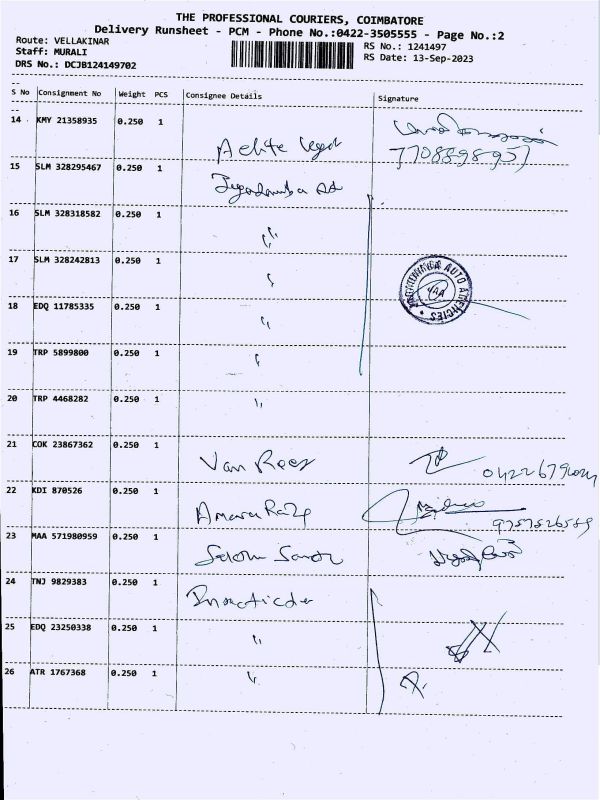 THE PROFESSIONAL COURIERS, COIMBATORE
Delivery Runsheet - PCM - Phone No.:0422-3505555 - Page No.:2
Route: VELLAKINAR
RS No.: 1241497
Staff: MURALI
RS Date: 13-Sep-2023
DRS No.: DCJB124149702
S No Consignment No Weight PCS Consignee Details Signature
14 KMY 21358935 0.250 1
7708898957
15 SLM 328295467 0.250 1
16 SLM 328318582 0.250 1 "
17 SLM 328242813 0.250 1 "
AUTO AGENCIES
18 EDQ 11785335 0.250 1 "
19 TRP 5899800 0.250 1 "
20 TRP 4468282 0.250 1 "
21 COK 23867362 0.250 1 Van Rees
22 KDI 870526 0.250 1 Amara Raja
23 MAA 571980959 0.250 1
24 TNJ 9829383 0.250 1
25 EDQ 23250338 0.250 1 "
26 ATR 1767368 0.250 1 "